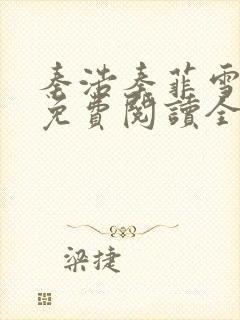 秦浩秦菲雪
免費閱讀全
梁捷